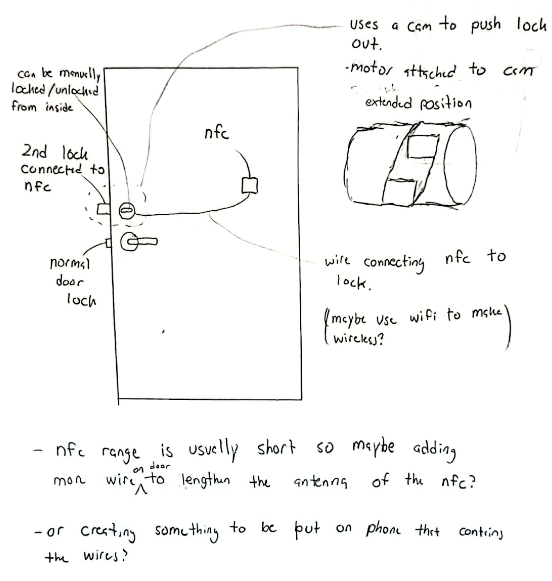 uses a cam to push lock
out.
-motor attached to cam
extended position
can be manually
locked/unlocked
from inside
nfc
2nd lock
connected to
nfc
normal
door
lock
wire connecting nfc to
lock.
(maybe use wifi to make
wireless?)
- nfc range is usually short so maybe adding
more wire on door to lengthen the antenna of the nfc?
- or creating something to be put on phone that contains
the wires?